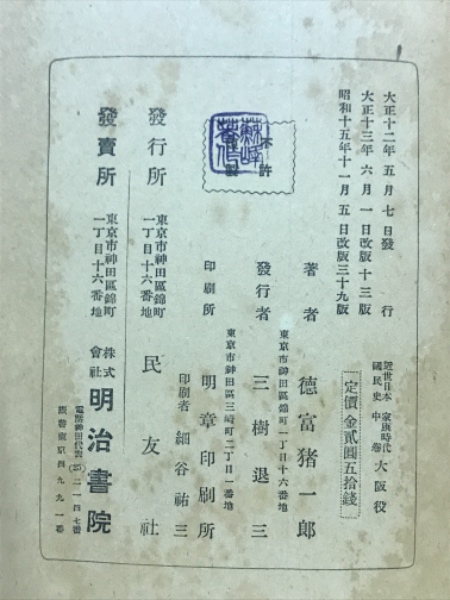 大正十二年五月七日發行
大正十三年六月一日改版十三版
昭和十五年十一月五日改版三十九版
近世日本國民史 家康時代中卷 大阪役
定價金貳圓五拾錢
不許
複製
著者 德富猪一郎
東京市神田區錦町一丁目十六番地
發行者 三樹退三
東京市神田區三崎町二丁目一番地
印刷所 明章印刷所
印刷者 細谷祐三
發行所
東京市神田區錦町
一丁目十六番地
民友社
發賣所
東京市神田區錦町
一丁目十六番地
株式會社 明治書院
電話神田代表(25)二一四七番
振替東京四九九一番